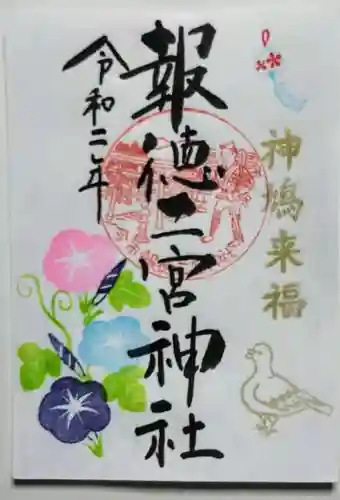 神鳩来福
報徳二宮神社
令和二年